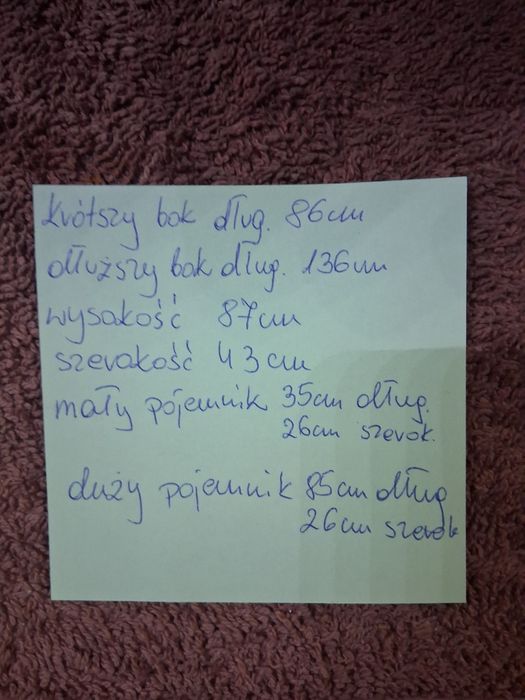 krótszy bok dług. 86cm
dłuższy bok dług. 136cm
wysokość 87cm
szerokość 43cm
mały pojemnik 35cm dług.
26cm szerok.
duży pojemnik 85cm dług
26cm szerok